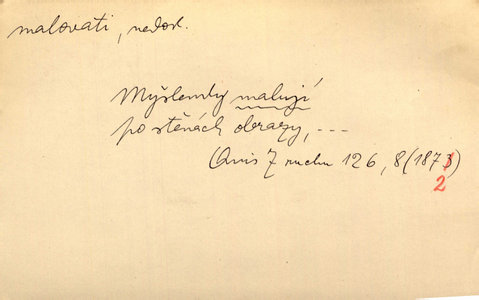 malovati, nedok.
Myšlenky malují
po stěnách obrazy, ---
(Anis Z ruchu 126, 8 (1873)
2